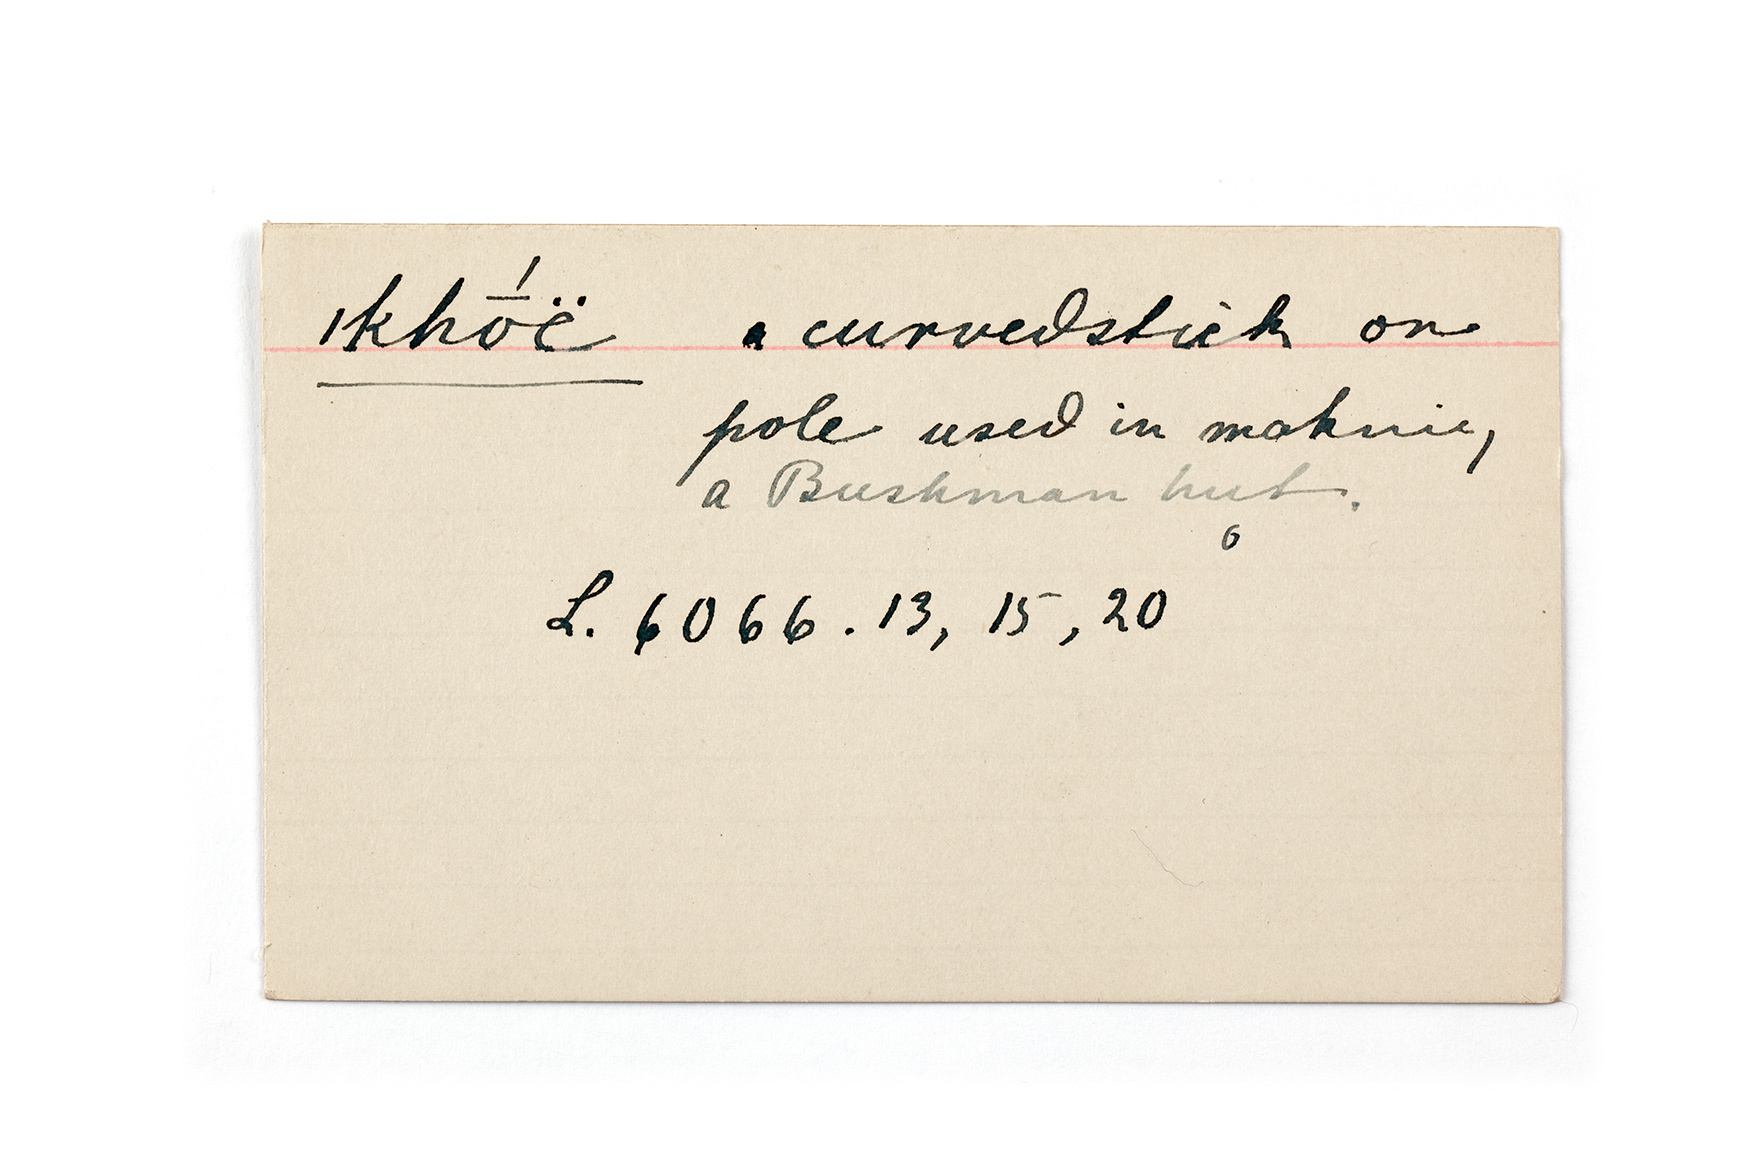 ǀkhṓë a curved stick or
pole used in making
a Bushman hut.
6
L. 6066. 13, 15, 20